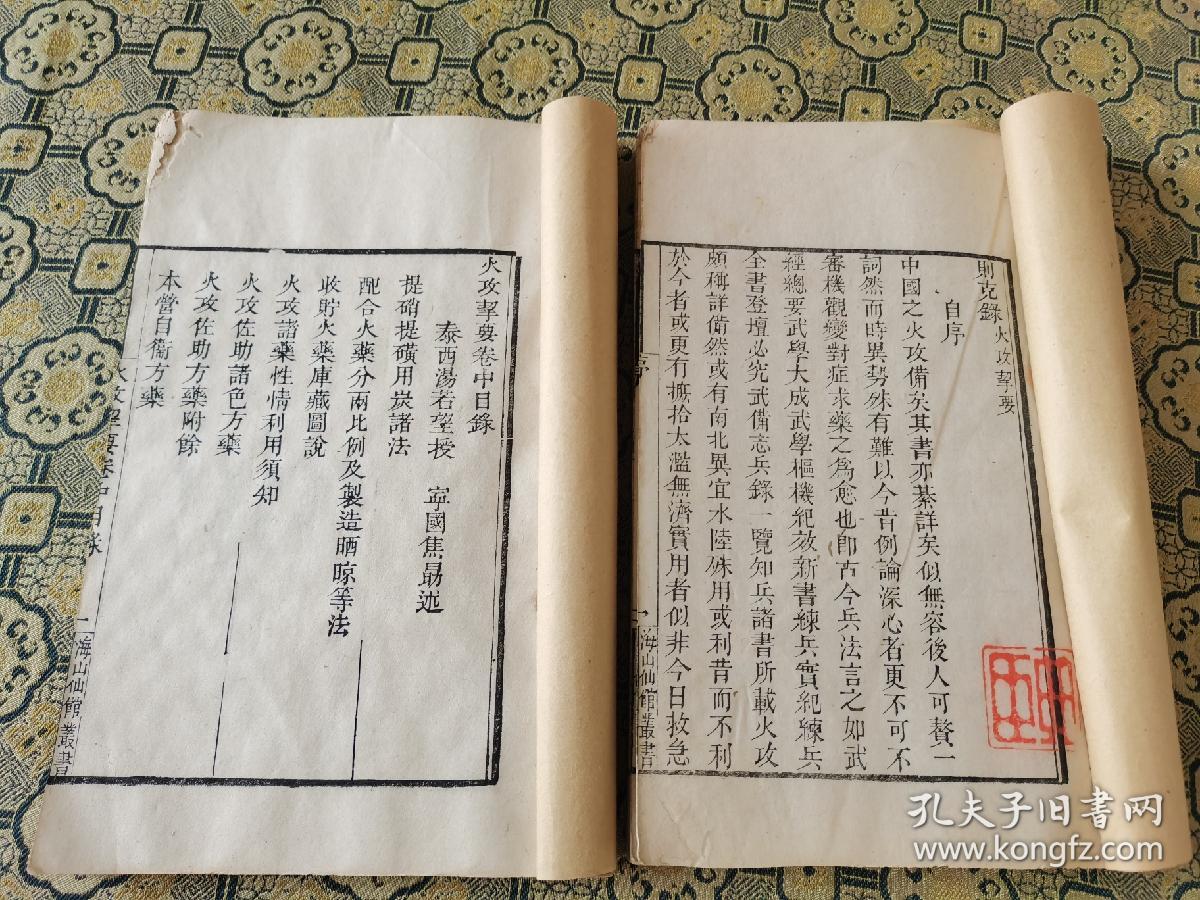 則克錄 火攻挈要
自序
中國之火攻備矣其書亦綦詳矣似無容後人可贅一
詞然而時異勢殊有難以今昔例論深心者更不可不
審機觀變對症求藥之為愈也卽古今兵法言之如武
經總要武學大成武學樞機紀效新書練兵實紀練兵
全書登壇必究武備志兵錄一覽知兵諸書所載火攻
頗稱詳備然或有南北異宜水陸殊用或利昔而不利
於今者或更有摭拾太濫無濟實用者似非今日救急
序
一
海山仙館叢書
火攻挈要卷中目錄
泰西湯若望授 寧國焦勗述
提硝提磺用炭諸法
配合火藥分兩比例及製造晒晾等法
收貯火藥庫藏圖說
火攻諸藥性情利用須知
火攻佐助諸色方藥
火攻佐助方藥附餘
本營自衞方藥
火攻挈要卷中目錄
一
海山仙館叢書
孔夫子旧书网
www.kongfz.com